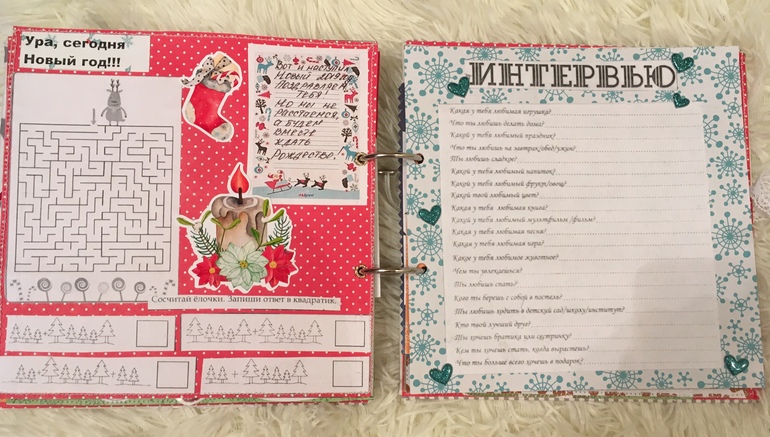 Ура, сегодня
Новый год!!!
Вот и наступил
Новый год
Поздравляем
тебя!
Но мы не
расстаемся,
а будем
вместе
ждать
Рождество.
Сосчитай ёлочки. Запиши ответ в квадратик.
ИНТЕРВЬЮ
Какая у тебя любимая игрушка?
Что ты любишь делать дома?
Какой у тебя любимый праздник?
Что ты любишь на завтрак/обед/ужин?
Ты любишь сладкое?
Какой у тебя любимый напиток?
Какой у тебя любимый фрукт/овощ?
Какой твой любимый цвет?
Какая у тебя любимая книга?
Какой у тебя любимый мультфильм /фильм?
Какая у тебя любимая песня?
Какая у тебя любимая игра?
Какое у тебя любимое животное?
Чем ты увлекаешься?
Ты любишь спать?
Кого ты берешь с собой в постель?
Ты любишь ходить в детский сад/школу/институт?
Кто твой лучший друг?
Ты хочешь братика или сестричку?
Кем ты хочешь стать, когда вырастешь?
Что ты больше всего хочешь в подарок?